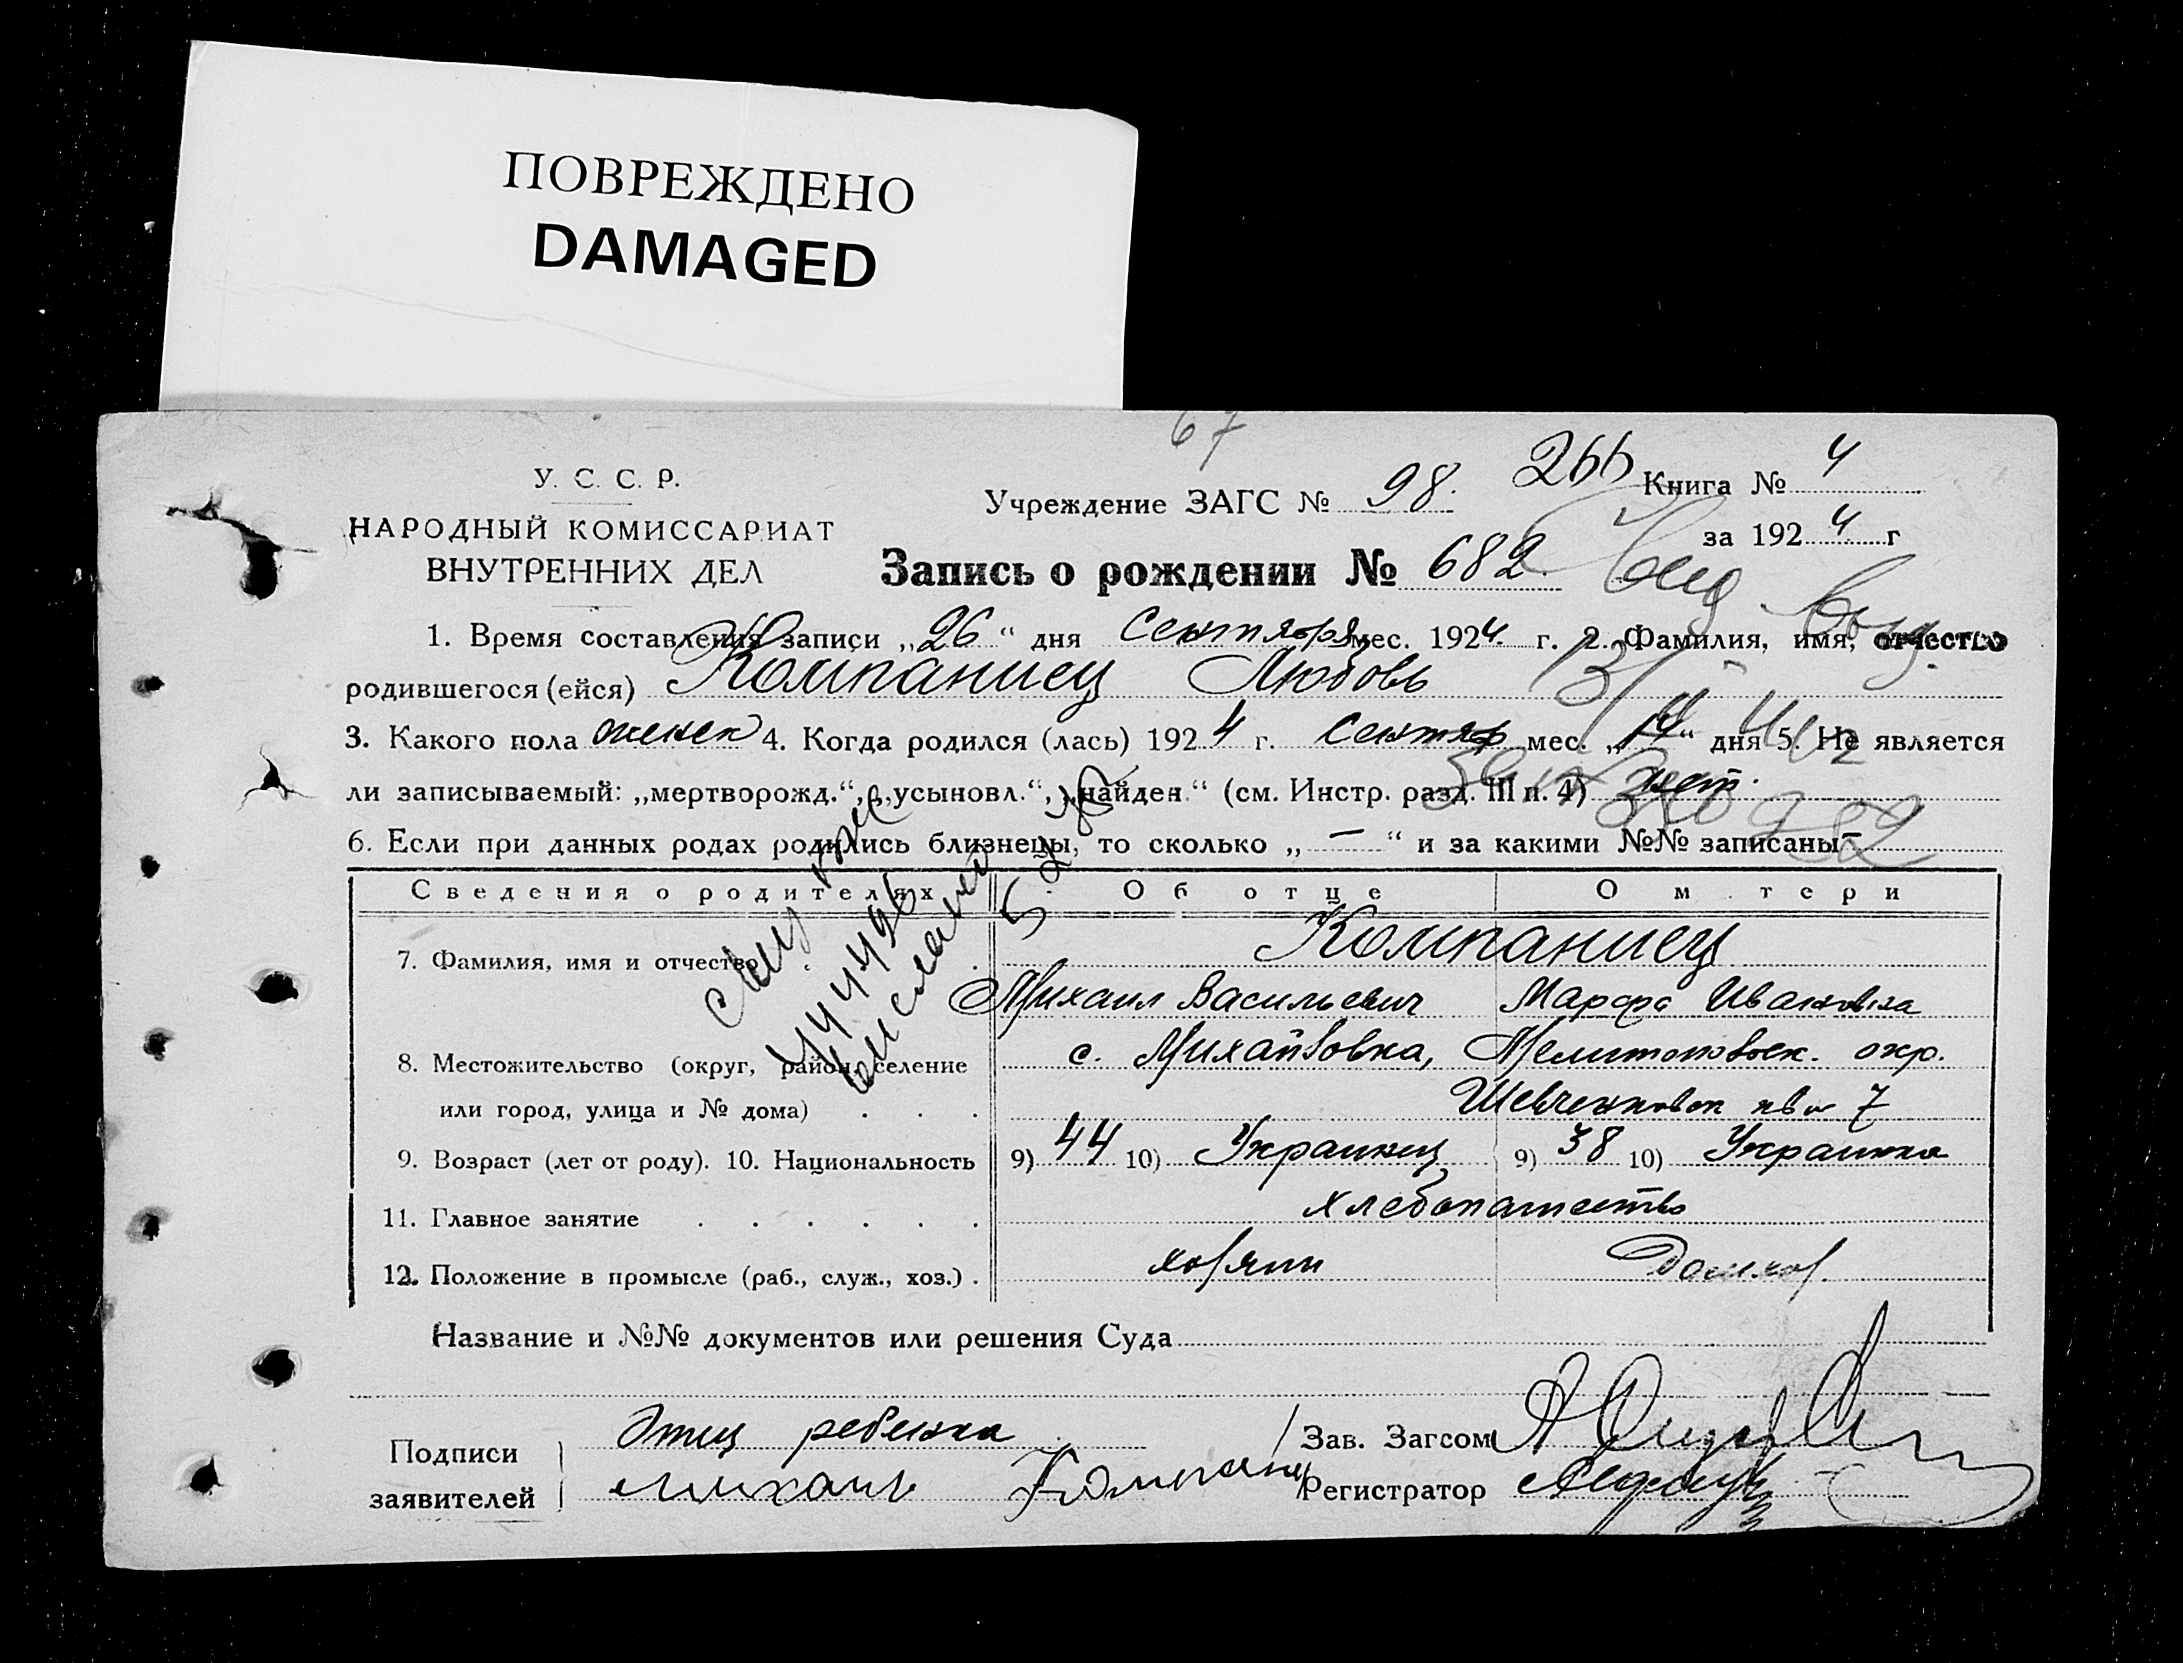 ПОВРЕЖДЕНО
DAMAGED
67
У. С. С. Р.
НАРОДНЫЙ КОМИССАРИАТ
ВНУТРЕННИХ ДЕЛ
Учреждение ЗАГС № 98.
266 Книга № 4
за 1924 г
Запись о рождении № 682.
1. Время составления записи „26“ дня Сентября мес. 1924. г. 2. Фамилия, имя, отчество
родившегося (ейся) Компаниец Любовь
3. Какого пола женск 4. Когда родился (лась) 1924 г. Сентябр мес. „14“ дня 5. Не является
ли записываемый: „мертворожд.“, „усыновл.“, „найден.“ (см. Инстр. разд. III п. 4) нет.
6. Если при данных родах родились близнецы, то сколько „—“ и за какими №№ записаны —
Сведения о родителях Об отце О м тери
7. Фамилия, имя и отчество . . Компаниец
Михаил Васильевич Марфа Ивановна
8. Местожительство (округ, район, селение с. Михайловка, Мелитопольск. окр.
или город, улица и № дома) . . . Шевченковск 7
9. Возраст (лет от роду). 10. Национальность 9) 44 10) Украинец 9) 38 10) Украинка
11. Главное занятие . . . . . . хлебопашество
12. Положение в промысле (раб., служ., хоз.) . хозяин Домхоз.
Название и №№ документов или решения Суда
Подписи заявителей
Отец ребенка
Михаил Компаниец
Зав. Загсом
Регистратор